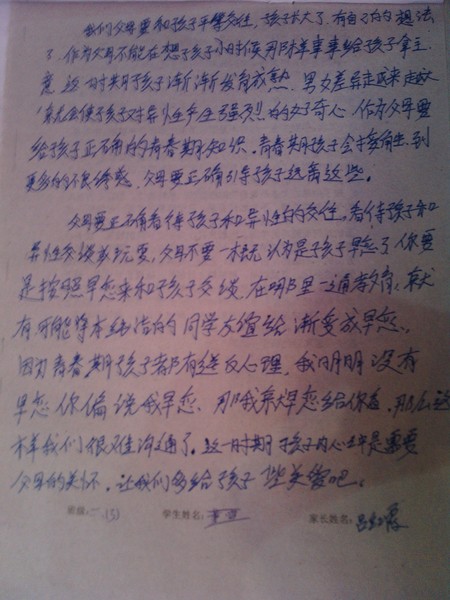 我们父母要和孩子平等交往，孩子长大了，有自己的想法
了，作为父母不能在想孩子小时候那样事事给孩子拿主
意，这一时期孩子渐渐发育成熟，男女差异走越来越大
就会使孩子对异性产生强烈的好奇心，作为父母要
给孩子正确的青春期知识。青春期孩子会接触到
更多的不良诱惑，父母要正确引导孩子远离这些。
父母要正确看待孩子和异性的交往，看待孩子和
异性交谈或玩耍，父母不要一概认为是孩子早恋了，你要
是按照早恋来和孩子交谈，在那里一通教育，就
有可能将本纯洁的同学友谊给渐变成早恋、
因为青春期孩子都有逆反心理，我明明没有
早恋你偏说我早恋，那我就早恋给你看，那么这
样我们很难沟通了。这一时期孩子内心是需要
父母的关怀，让我们多给孩子一些关爱吧。
班级：二.(3) 学生姓名： 家长姓名：